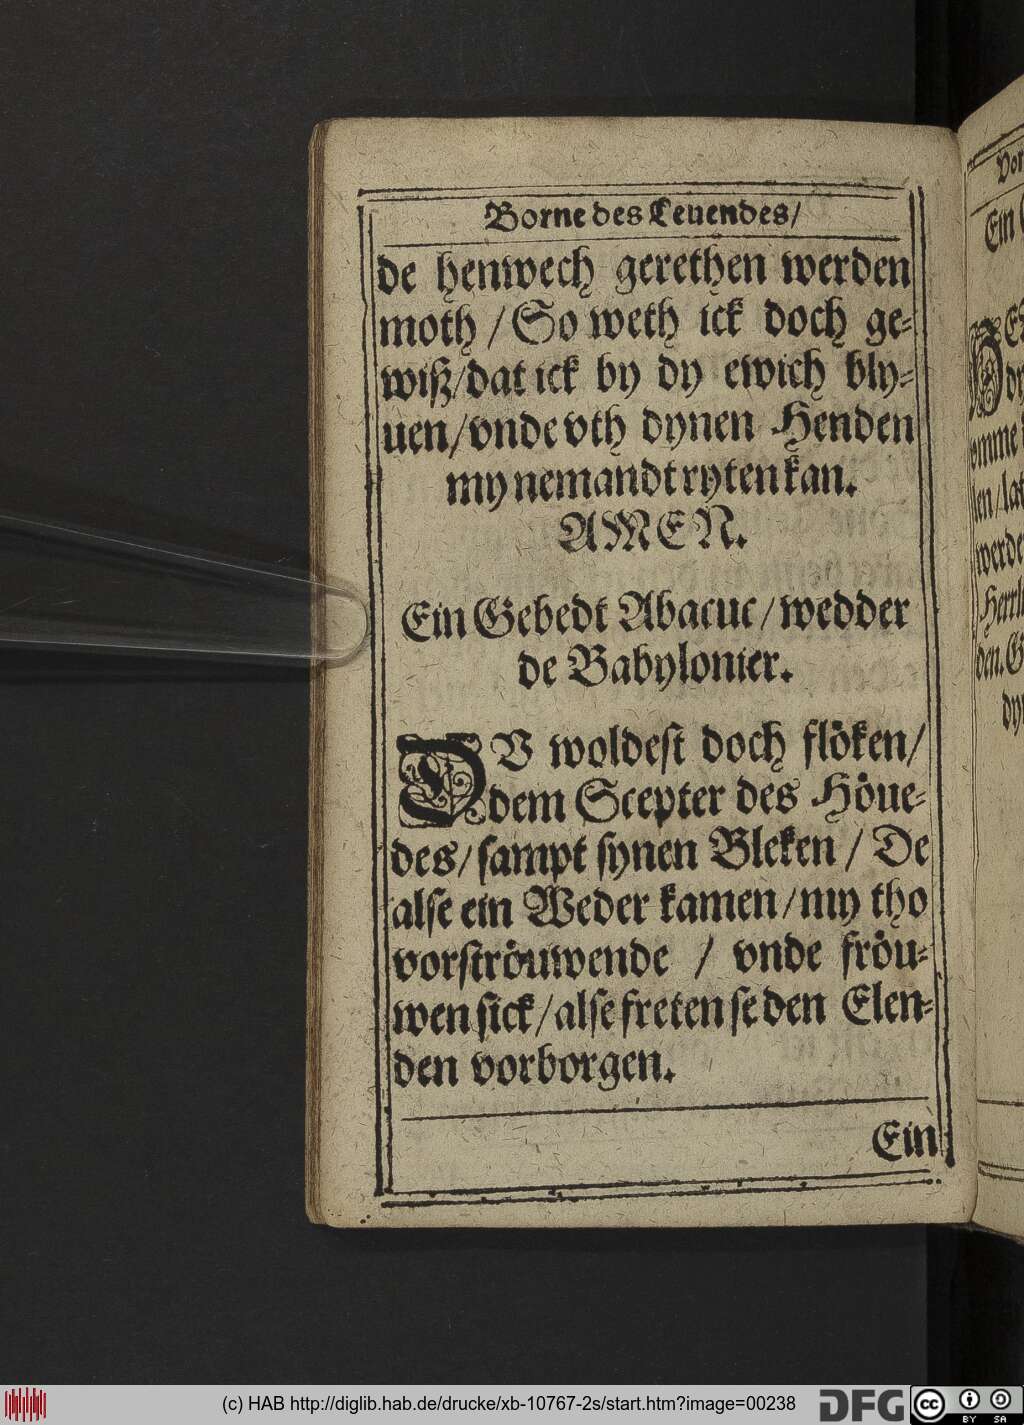 Borne des Leuendes/
de henwech gerethen werden
moth / So weth ick doch ge⸗
wiß/dat ick by dy ewich bly⸗
uen/vnde vth dynen Henden
my nemandt ryten kan.
AMEN.
Ein Gebedt Abacuc/wedder
de Babylonier.
DV woldest doch flöken/
dem Scepter des Höue⸗
des/sampt synen Bleken / De
alse ein Weder kamen/my tho
vorströuwende / vnde fröu⸗
wen sick/alse freten se den Elen⸗
den vorborgen.
Ein
Ein
werde
den.
(c) HAB http://diglib.hab.de/drucke/xb-10767-2s/start.htm?image=00238
DFG
cc
BY SA